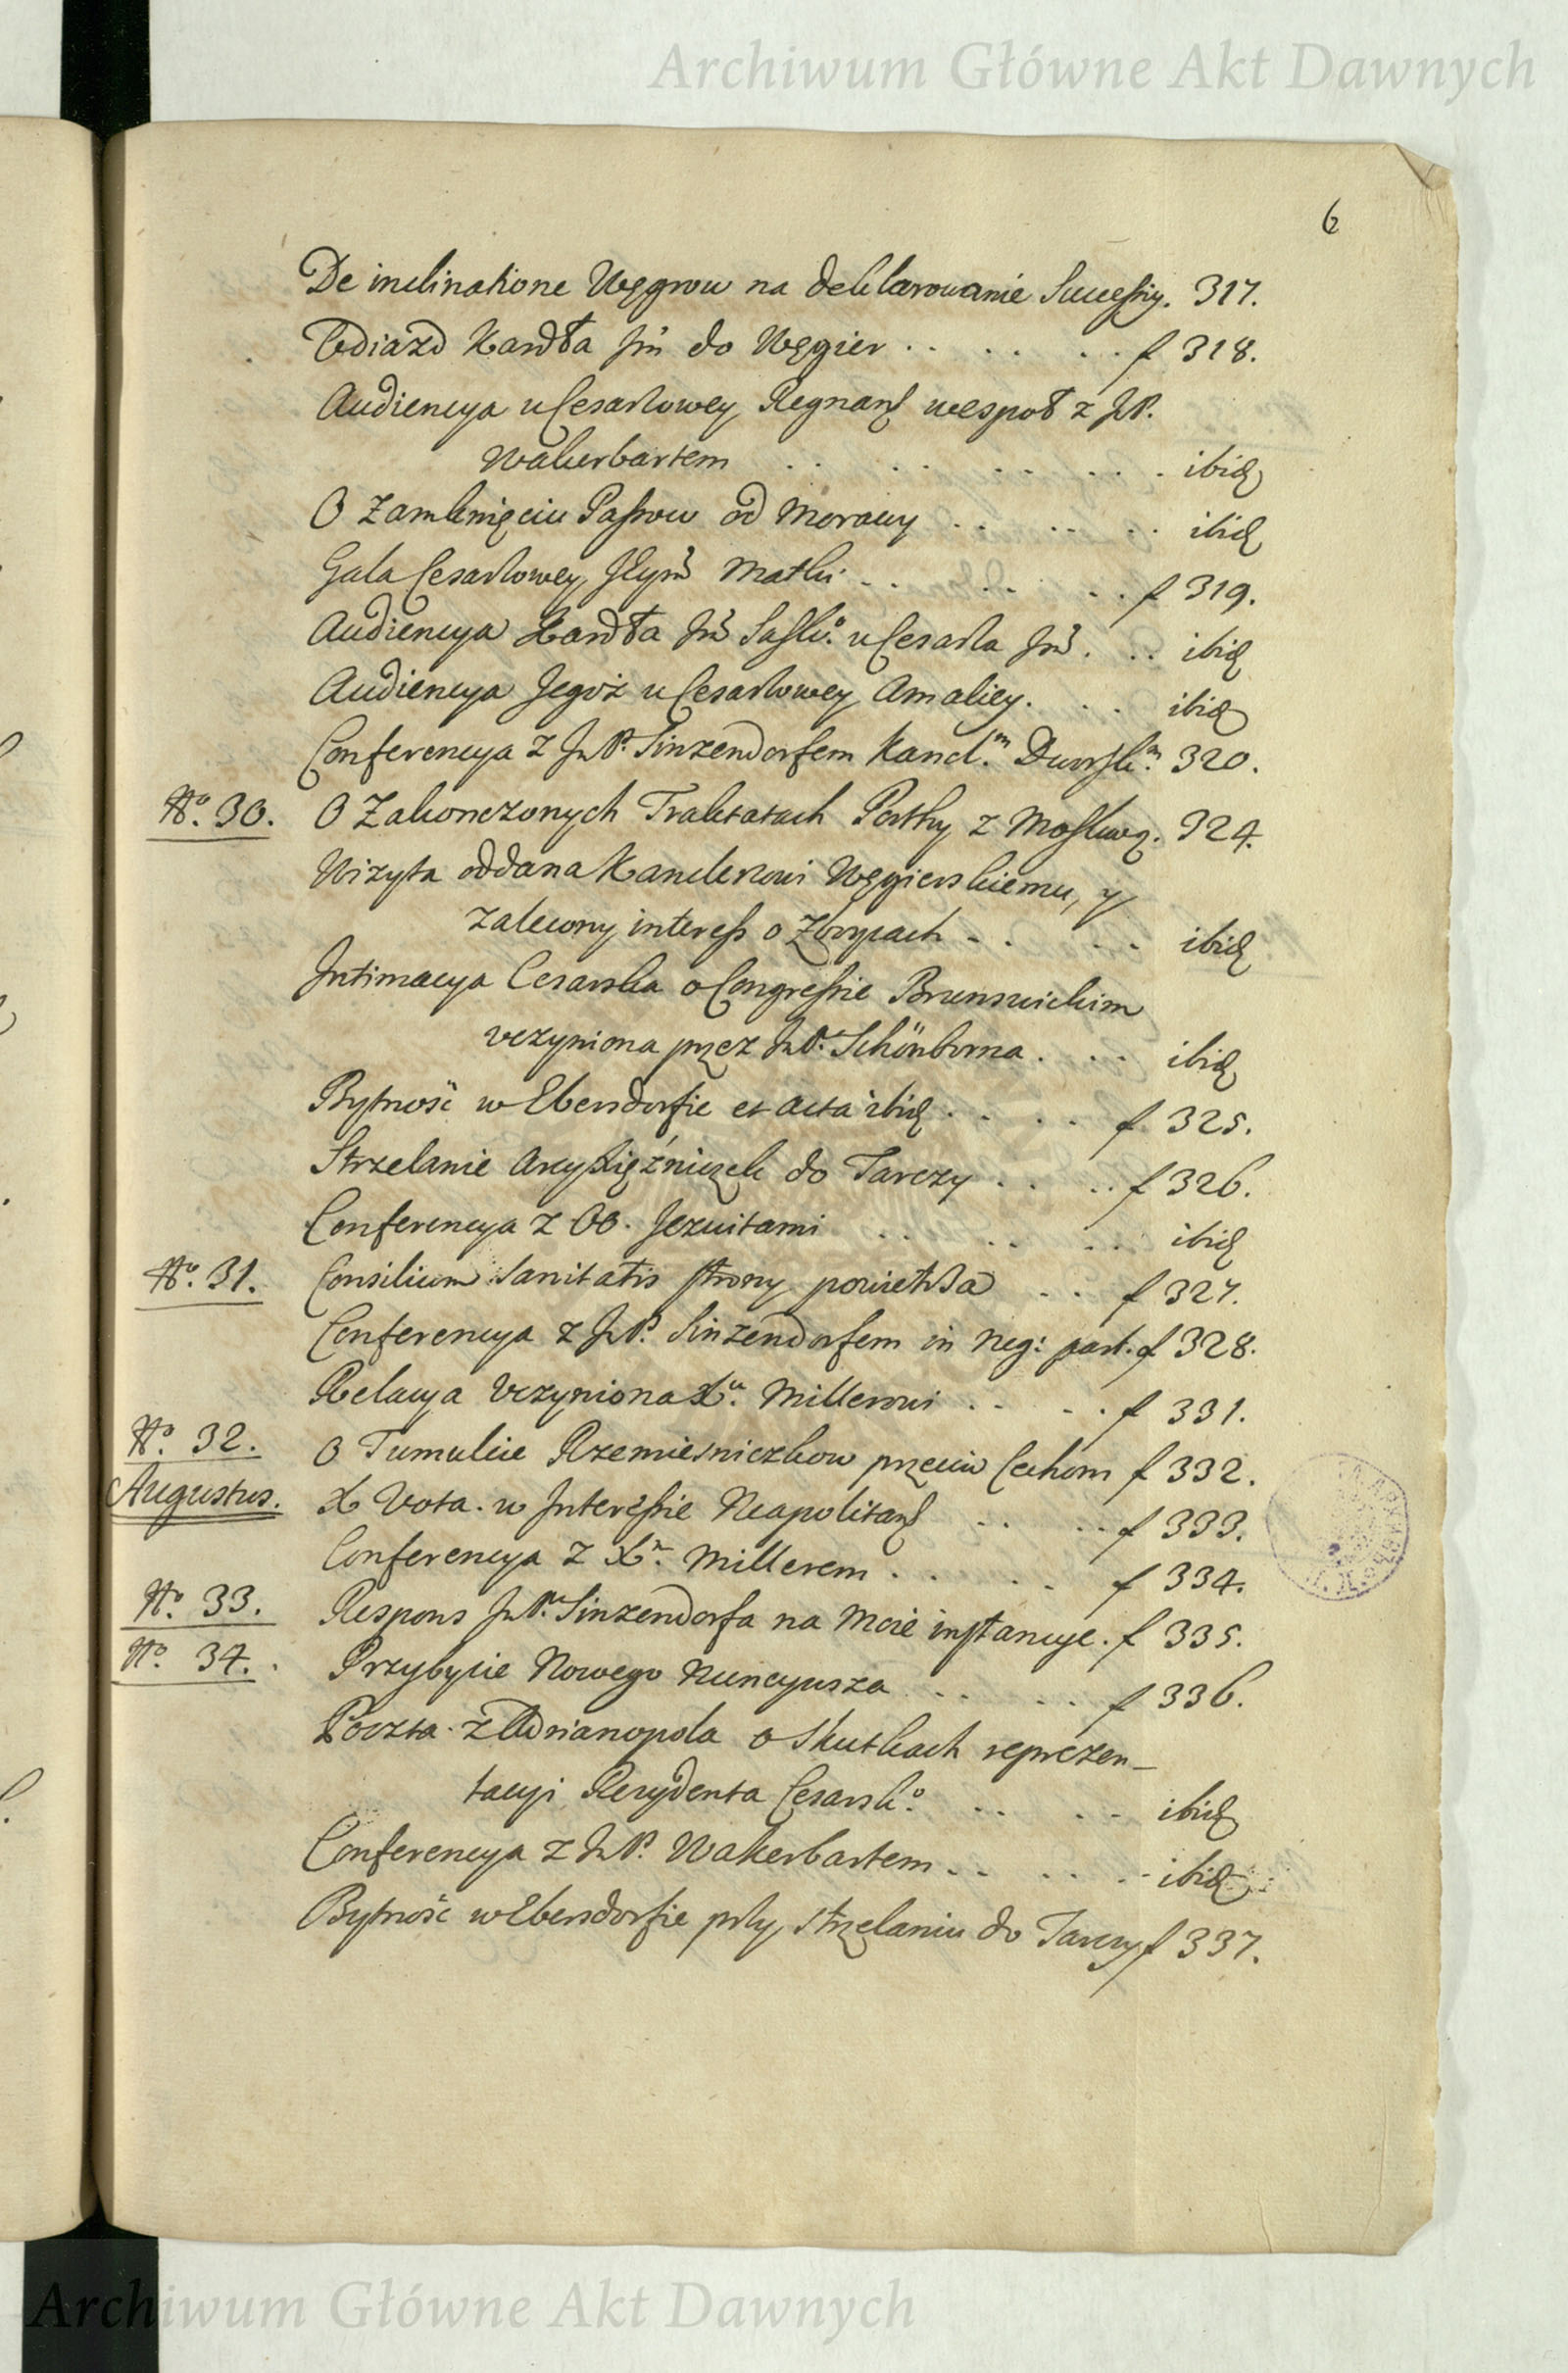 Archiwum Główne Akt Dawnych
6
De inclinatione Węgrow na deklarowanie Successyi. 317.
Odiazd Kardła Jm̃ do Węgier . . . . . . f 318.
Audiencya u Cesarzowey Regnanţ wespoł z JP.
Wakerbartem . . . . . . . . ibid
O Zamknięciu Passow od Morawy . . . . . . ibid
Gala Cesarzowey Jeym̃ Matki . . . . . . f 319.
Audiencya Kardła Jm̃ Sasko. u Cesarza Jm̃. . . ibid
Audiencya Jegoż u Cesarzowey Amaliey. . . ibid
Conferencya z JmP. Sinzendorfem Kancl.m Dworsk.m 320.
No. 30. O Zakonczonych Traktatach Porthy z Moskwą. 324.
Wizyta oddana Kanclerzowi Węgierskiemu, y
zalecony interess o Zborpach . . . . ibid
Intimacya Cesarska o Congressie Brunswickim
vczyniona przez JmP. Schönborna . . . ibid
Bytność w Ebersdorfie et acta ibid . . . . f 325.
Strzelanie Arcyxiężniczek do Tarczy . . . . f 326.
Conferencya z OO. Jezuitami . . . . . . ibid
No. 31. Consilium Sanitatis strony powietrza . . f 327.
Conferencya z JmP. Sinzendorfem in neg: part. f 328.
Relacya vczyniona Xu. Millerowi . . . . f 331.
No. 32. O Tumulcie Rzemiesniczkow przeciw Cechom f 332.
Augustus. X Vota. w Interessie Neapolitanţ . . . . f 333.
Conferencya z Xm. Millerem . . . . . f 334.
No. 33. Respons JmP. Sinzendorfa na moie instancye. f 335.
No. 34. Przybycie Nowego Nuncyusza . . . . . f 336.
Poczta z Adrianopola o Skutkach reprezen-
tacyi Rezydenta Cesarsko. . . . . ibid
Conferencya z JmP. Wakerbartem . . . . . ibid
Bytność w Ebersdorfie przy strzelaniu do Tarczy f 337.
Archiwum Główne Akt Dawnych